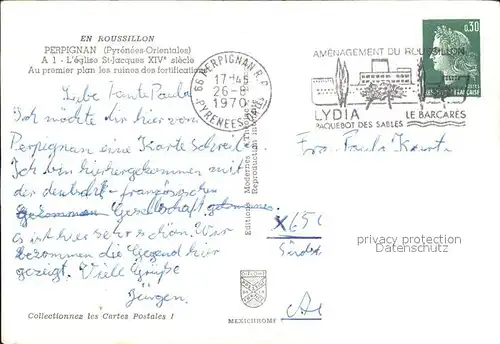 EN ROUSSILLON
PERPIGNAN (Pyrénées-Orientales)
A 1 - L'église St-Jacques XIVe siècle
Au premier plan les ruines des fortifications
Liebe Tante Paula
Ich möchte dir hier von
Perpignan eine Karte schreiben.
Ich bin hierhergekommen mit
der deutsch-französischen
Gekommen Gesellschaft gekommen.
es ist hier sehr schön. Wir
bekommen die Gegend hier
gezeigt. Viele Grüße
Jürgen.
Collectionnez les Cartes Postales !
66 PERPIGNAN R.P.
17-45
26-8
1970
PYRENEES-OR
Editions Modernes
Reproduction
MEXICHROME
AMÉNAGEMENT DU ROUSSILLON
LYDIA
PAQUEBOT DES SABLES
LE BARCARÈS
0,30
FRANÇAISE
Frau Paula
X 65
privacy protection
watermark